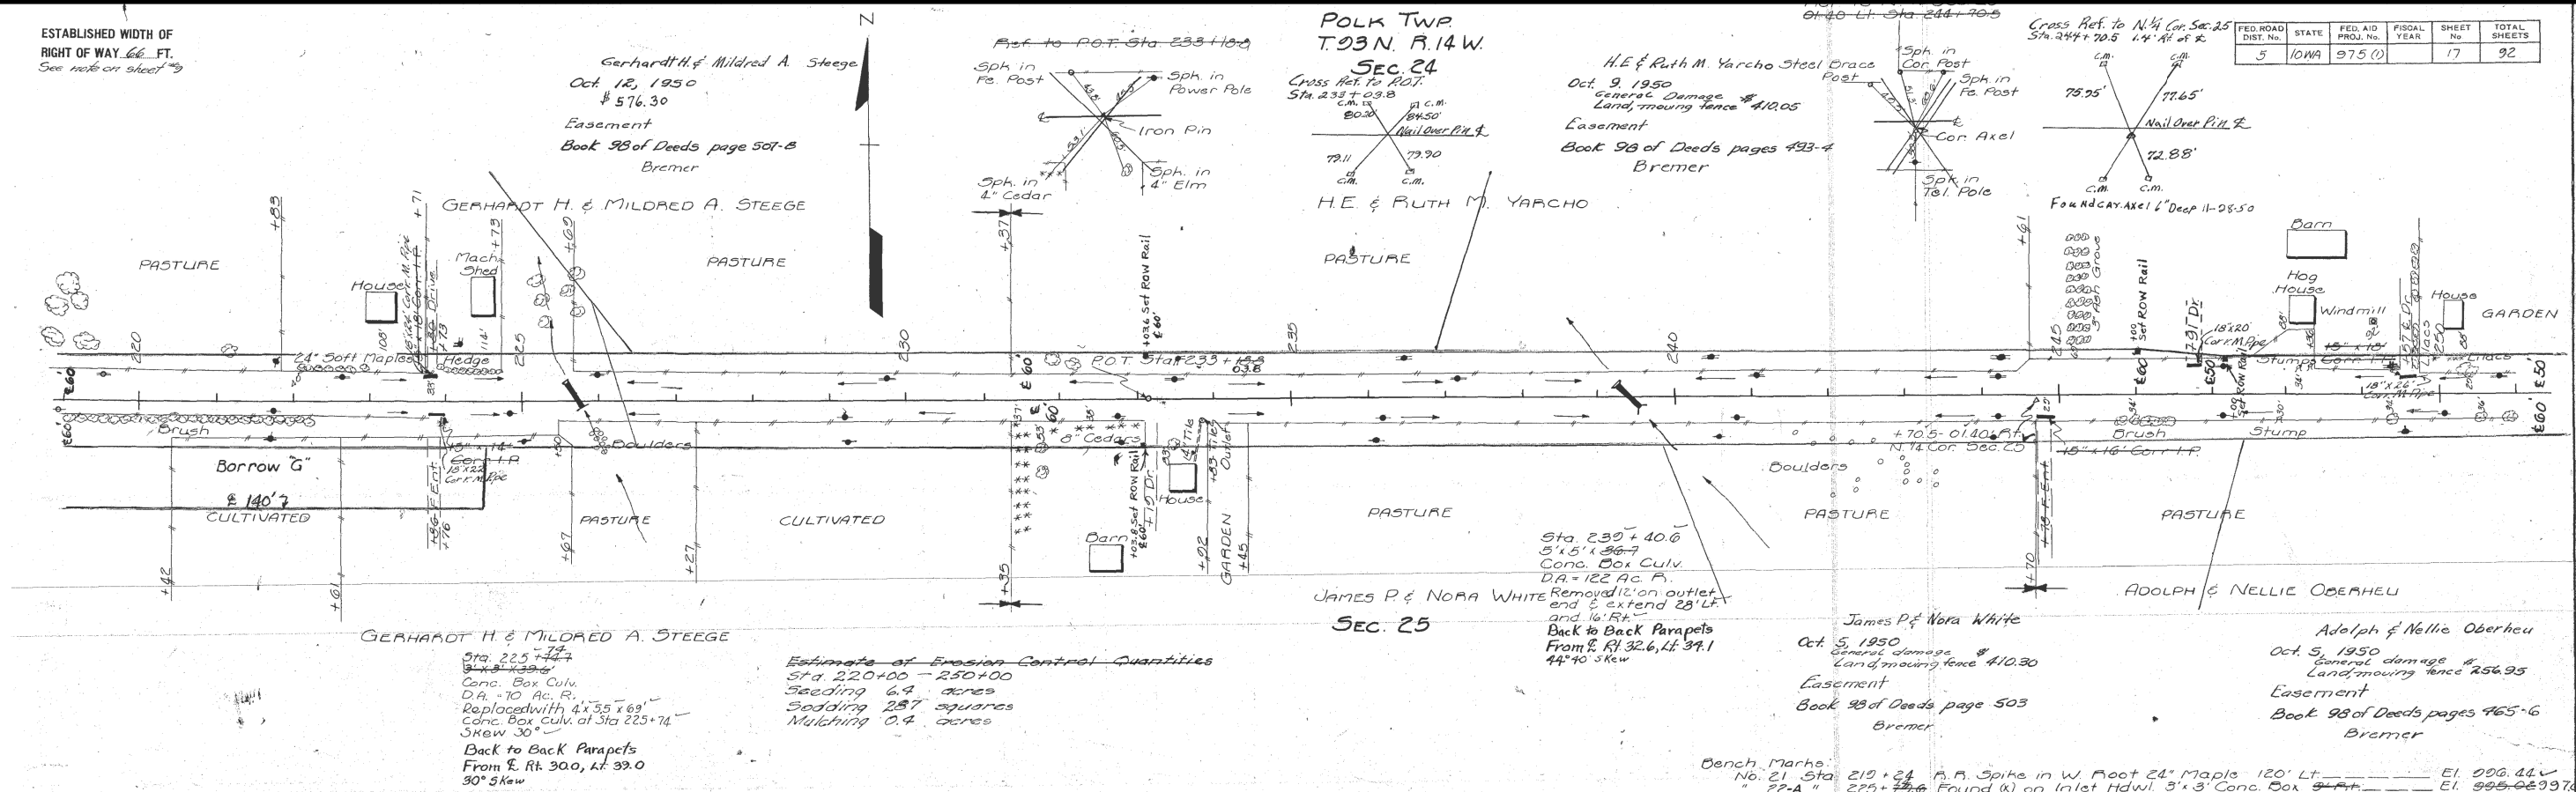 ESTABLISHED WIDTH OF
RIGHT OF WAY 66 FT.
See note on sheet #9
Gerhardt H. & Mildred A. Steege
Oct. 12, 1950
$ 576.30
Easement
Book 98 of Deeds page 507-8
Bremer
N
Ref. to P.O.T. Sta. 233+18.8
Spk. in
Fe. Post
Spk. in
Power Pole
Iron Pin
Spk. in
4" Cedar
Spk. in
4" Elm
POLK TWP.
T. 93 N. R. 14 W.
SEC. 24
Cross Ref. to P.O.T.
Sta. 233+03.8
C.M.
C.M.
80.20
84.50'
Nail Over Pin ℄
79.11
79.90
C.M.
C.M.
01.40 Lt. Sta. 244+70.5
H.E. & Ruth M. Yarcho
Oct. 9, 1950
General Damage $
Land, moving fence 410.05
Easement
Book 98 of Deeds pages 493-4
Bremer
Steel Brace
Post
Spk. in
Cor. Post
Spk. in
Fe. Post
℄
Cor. Axel
Spk. in
Tel. Pole
Cross Ref. to N. 1/4 Cor. Sec. 25
Sta. 244+70.5 1.4' Rt of ℄
C.M.
C.M.
75.95'
77.65'
Nail Over Pin ℄
72.88'
C.M.
C.M.
Found Car. Axel 6" Deep 11-28-50
FED. ROAD DIST. No. STATE FED. AID PROJ. No. FISCAL YEAR SHEET No TOTAL SHEETS
5 IOWA 975 (1) 17 92
GERHARDT H. & MILDRED A. STEEGE
H.E. & RUTH M. YARCHO
+83
+71
+73
+69
+37
+61
PASTURE
House
Mach.
Shed
PASTURE
+03.6 Set ROW Rail
℄ 60'
PASTURE
Ash Grove
+00 Set ROW Rail
+79 Dr.
Barn
Hog
House
Windmill
House
GARDEN
Lilacs
220
24" Soft Maples
108'
Drive
+73
Hedge
114'
225
230
P.O.T. Sta. 233+18.8
03.8
235
240
245
18"x20'
Corr. M. Pipe
Stumps
Lilacs
250
18"x26'
Corr. M. Pipe
℄60'
℄ 60'
℄60
℄50'
℄50'
℄60'
℄ 60'
℄60'
Brush
Boulders
8" Cedars
14" Tile
+70.5 - 01.40' Rt.
N. 1/4 Cor. Sec. 25
Brush
Stump
15" x 16' Corr. I.P.
Borrow "G"
℄ 140'?
CULTIVATED
15" x 14'
Corr. I.P.
18"x22'
Corr. M. Pipe
+86 F. Ent.
+76
PASTURE
CULTIVATED
+03.8 Set ROW Rail
℄60'
+19 Dr.
House
+83 Tile
Outlet
Barn
GARDEN
PASTURE
Boulders
PASTURE
+78 F. Ent.
PASTURE
+42
+61
+67
+27
+35
+92
+45
+70
Sta. 239 + 40.6
5' x 5' x 36.7
Conc. Box Culv.
D.A. = 122 Ac. R.
Removed 12' on outlet
end & extend 28' Lt.
and 16' Rt.
Back to Back Parapets
From ℄ Rt. 32.6, Lt. 34.1
44°40' Skew
JAMES P. & NORA WHITE
SEC. 25
ADOLPH & NELLIE OBERHEU
GERHARDT H. & MILDRED A. STEEGE
74
Sta. 225 + 74.7
3' x 3' x 39.6'
Conc. Box Culv.
D.A. = 70 Ac. R.
Replaced with 4' x 5.5 x 69'
Conc. Box Culv. at Sta 225+74
Skew 30°
Back to Back Parapets
From ℄ Rt. 30.0, Lt. 39.0
30° Skew
Estimate of Erosion Control Quantities
Sta. 220+00 - 250+00
Seeding 6.4 acres
Sodding 287 squares
Mulching 0.4 acres
James P. & Nora White
Oct. 5, 1950
General damage $
Land, moving fence 410.30
Easement
Book 98 of Deeds page 503
Bremer
Adolph & Nellie Oberheu
Oct. 5, 1950
General damage $
Land, moving fence 256.95
Easement
Book 98 of Deeds pages 465-6
Bremer
Bench Marks:
No. 21 Sta 219+24 R.R. Spike in W. Root 24" Maple 120' Lt. El. 996.44
" 22-A " 225+ Found (x) on Inlet Hdwl. 3'x3' Conc. Box El.